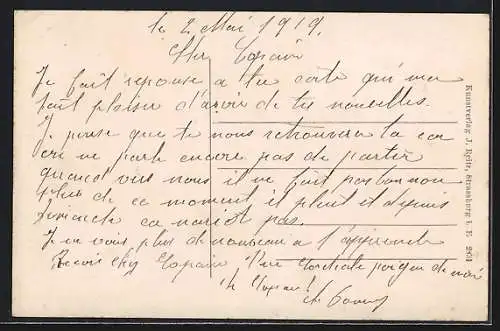 le 2 Mai 1919.
Cher Copain
Je fait reponse a ta carte qui ma
fait plaisir d'avoir de tes nouvelles.
Je pense que tu nous retrouvera la car
on ne parle encore pas de partir
quand a nous il ne fait pas bon non
plus de ce moment il pleut et depuis
dimanche ca pas.
Je ne vois plus de nouveau a l'apprendre
Recois Cher Copain Une Cordiale de moi
Kunstverlag J. Reitz, Strassburg i. E. 2631